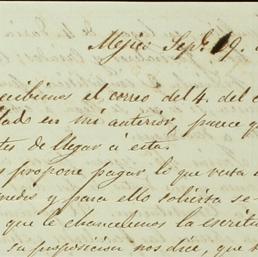 Mejico Sept. 19.
recibimos el correo del 4. del c
lado en mi anterior, parece q
tes de llegar á esta.
s propone pagar lo que resta
medos y para ello solicita se-
que le chancelemos la escritu
su proposicion nos dice, que